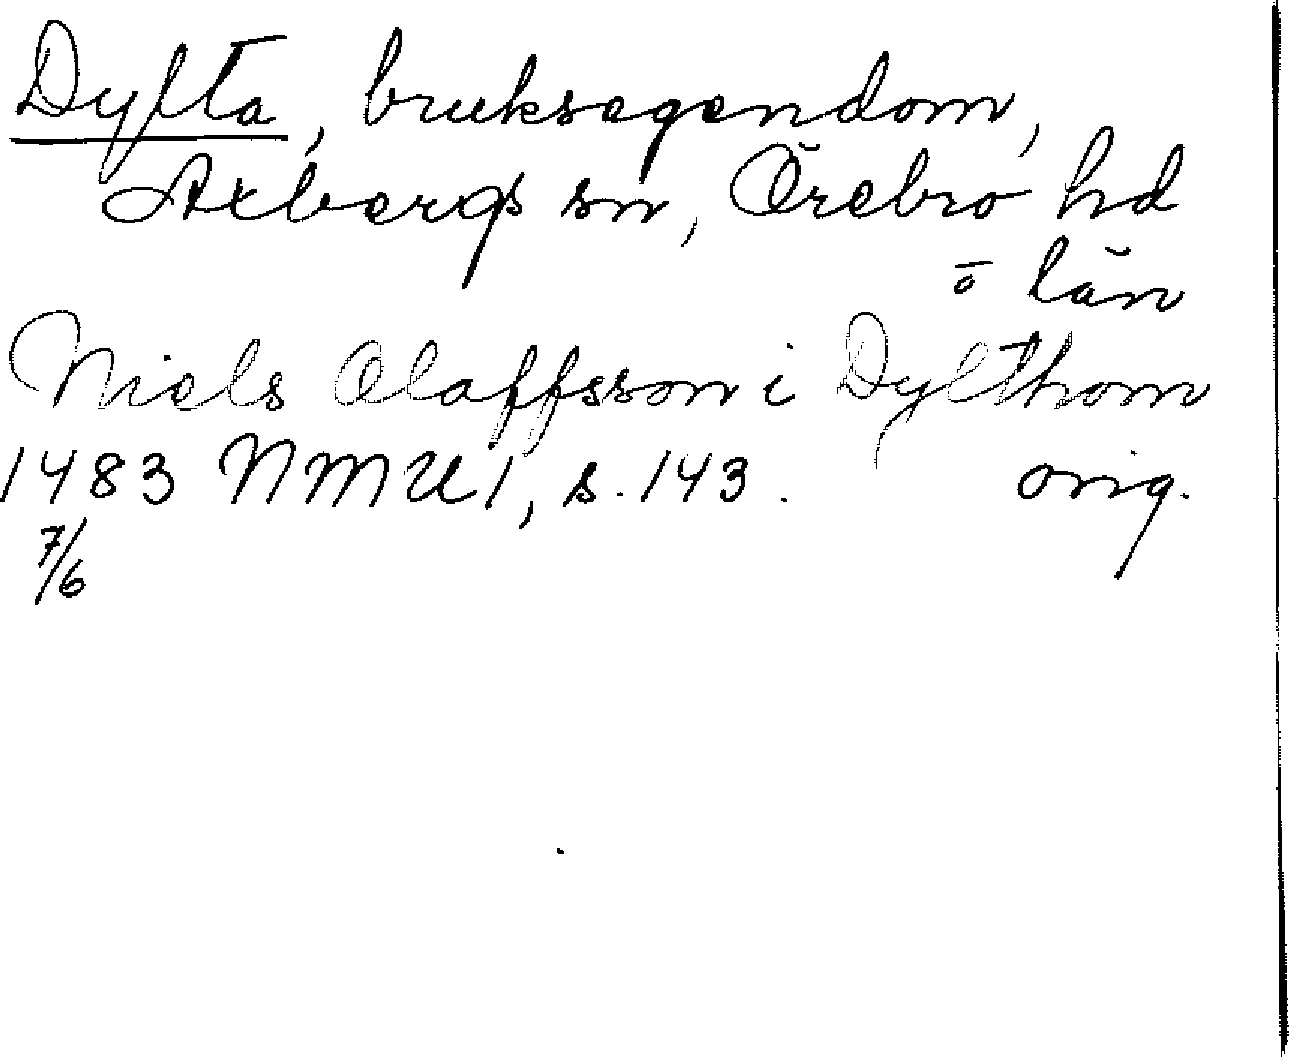 Dylta, bruksegendom,
Axbergs sn, Örebro hd
o län
Niels Olaffsson i Dylthom
1483 NMU 1, s. 143. orig.
7/6